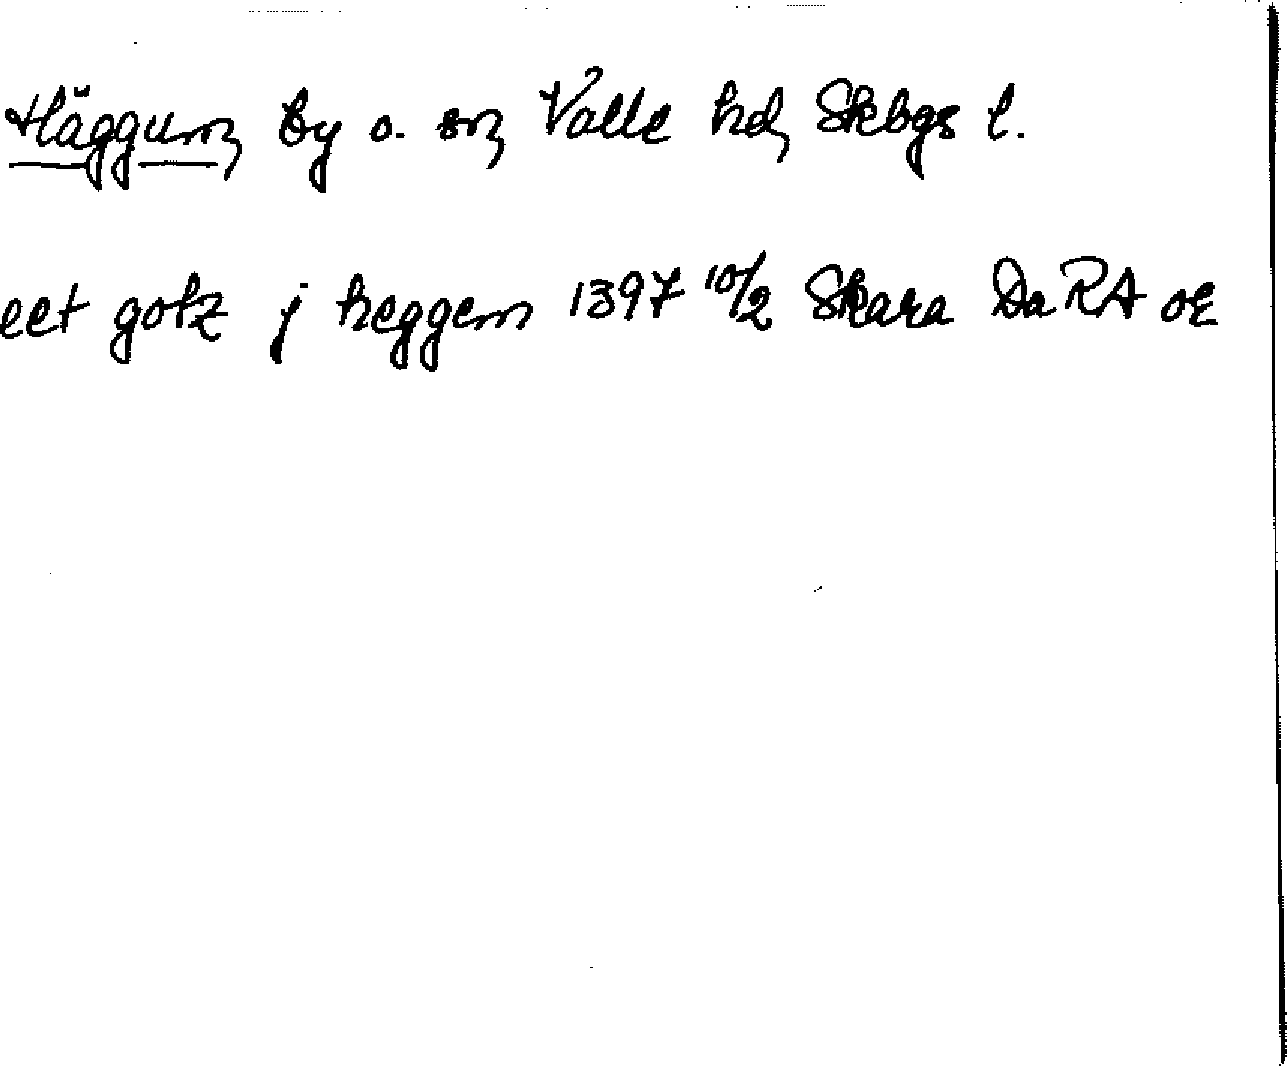 Häggum, by o. sn, Valle hd, Skbgs l.
eet gotz j heggem 1397 10/2 Skara Da RA or